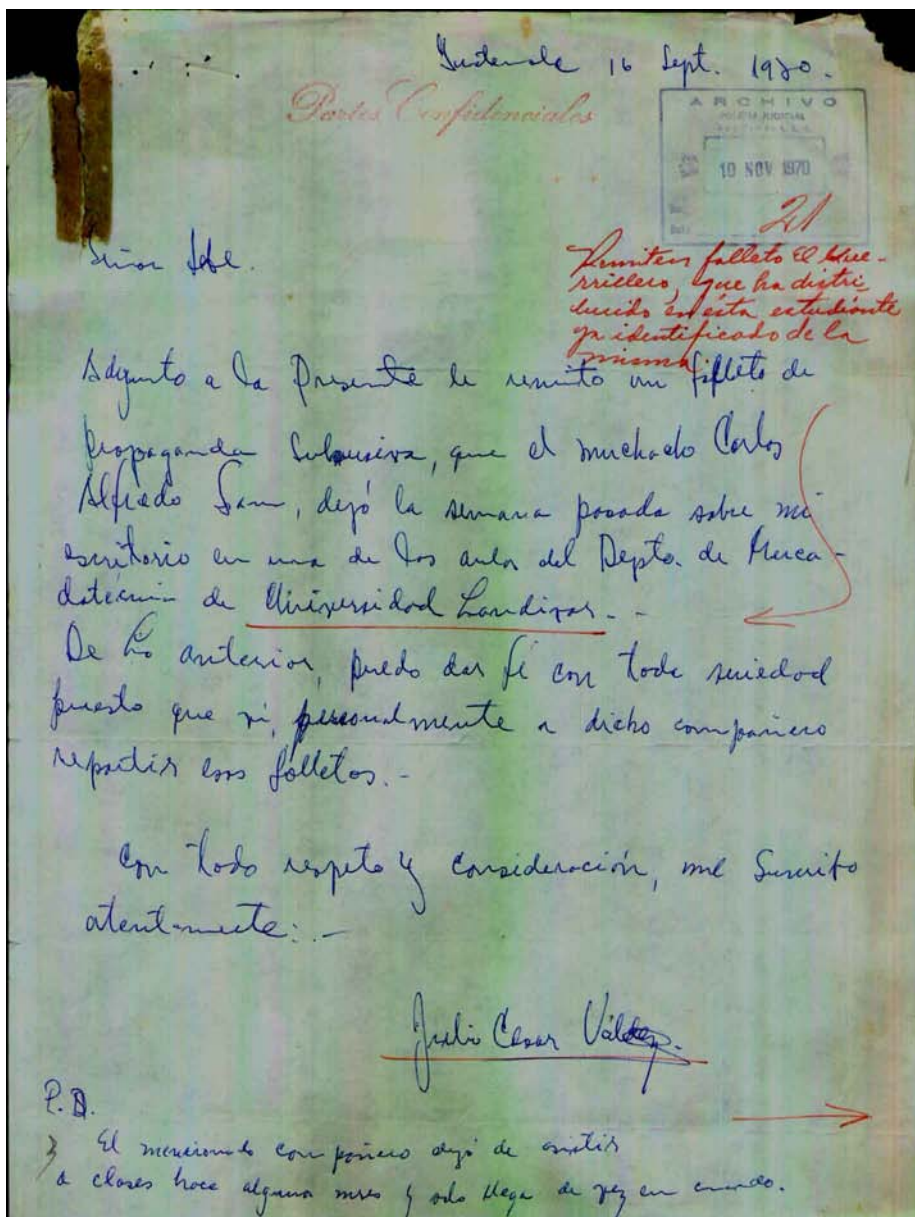 Guatemala 16 Sept. 1970.
Partes Confidenciales
ARCHIVO
POLICIA JUDICIAL
10 NOV 1970
21
Señor Jefe.
Remiten folleto El Gue-
rrillero, que ha distri-
buido en ésta estudiante
ya identificado de la
misma.
Adjunto a la Presente le remito un folleto de
propaganda Subversiva, que el muchacho Carlos
Alfredo, dejó la semana pasada sobre mi
escritorio en una de las aulas del Depto. de Merca-
dotecnia de Universidad Landivar. -
De lo anterior, puedo dar fé con toda seriedad
puesto que vi, personalmente a dicho compañero
repartir esos folletos.-
Con todo respeto y consideración, me Suscribo
atentamente:.-
Julio Cesar Váldez.
P.D.
El mencionado compañero dejó de asistir
a clases hace algunos meses y solo llega de vez en cuando.